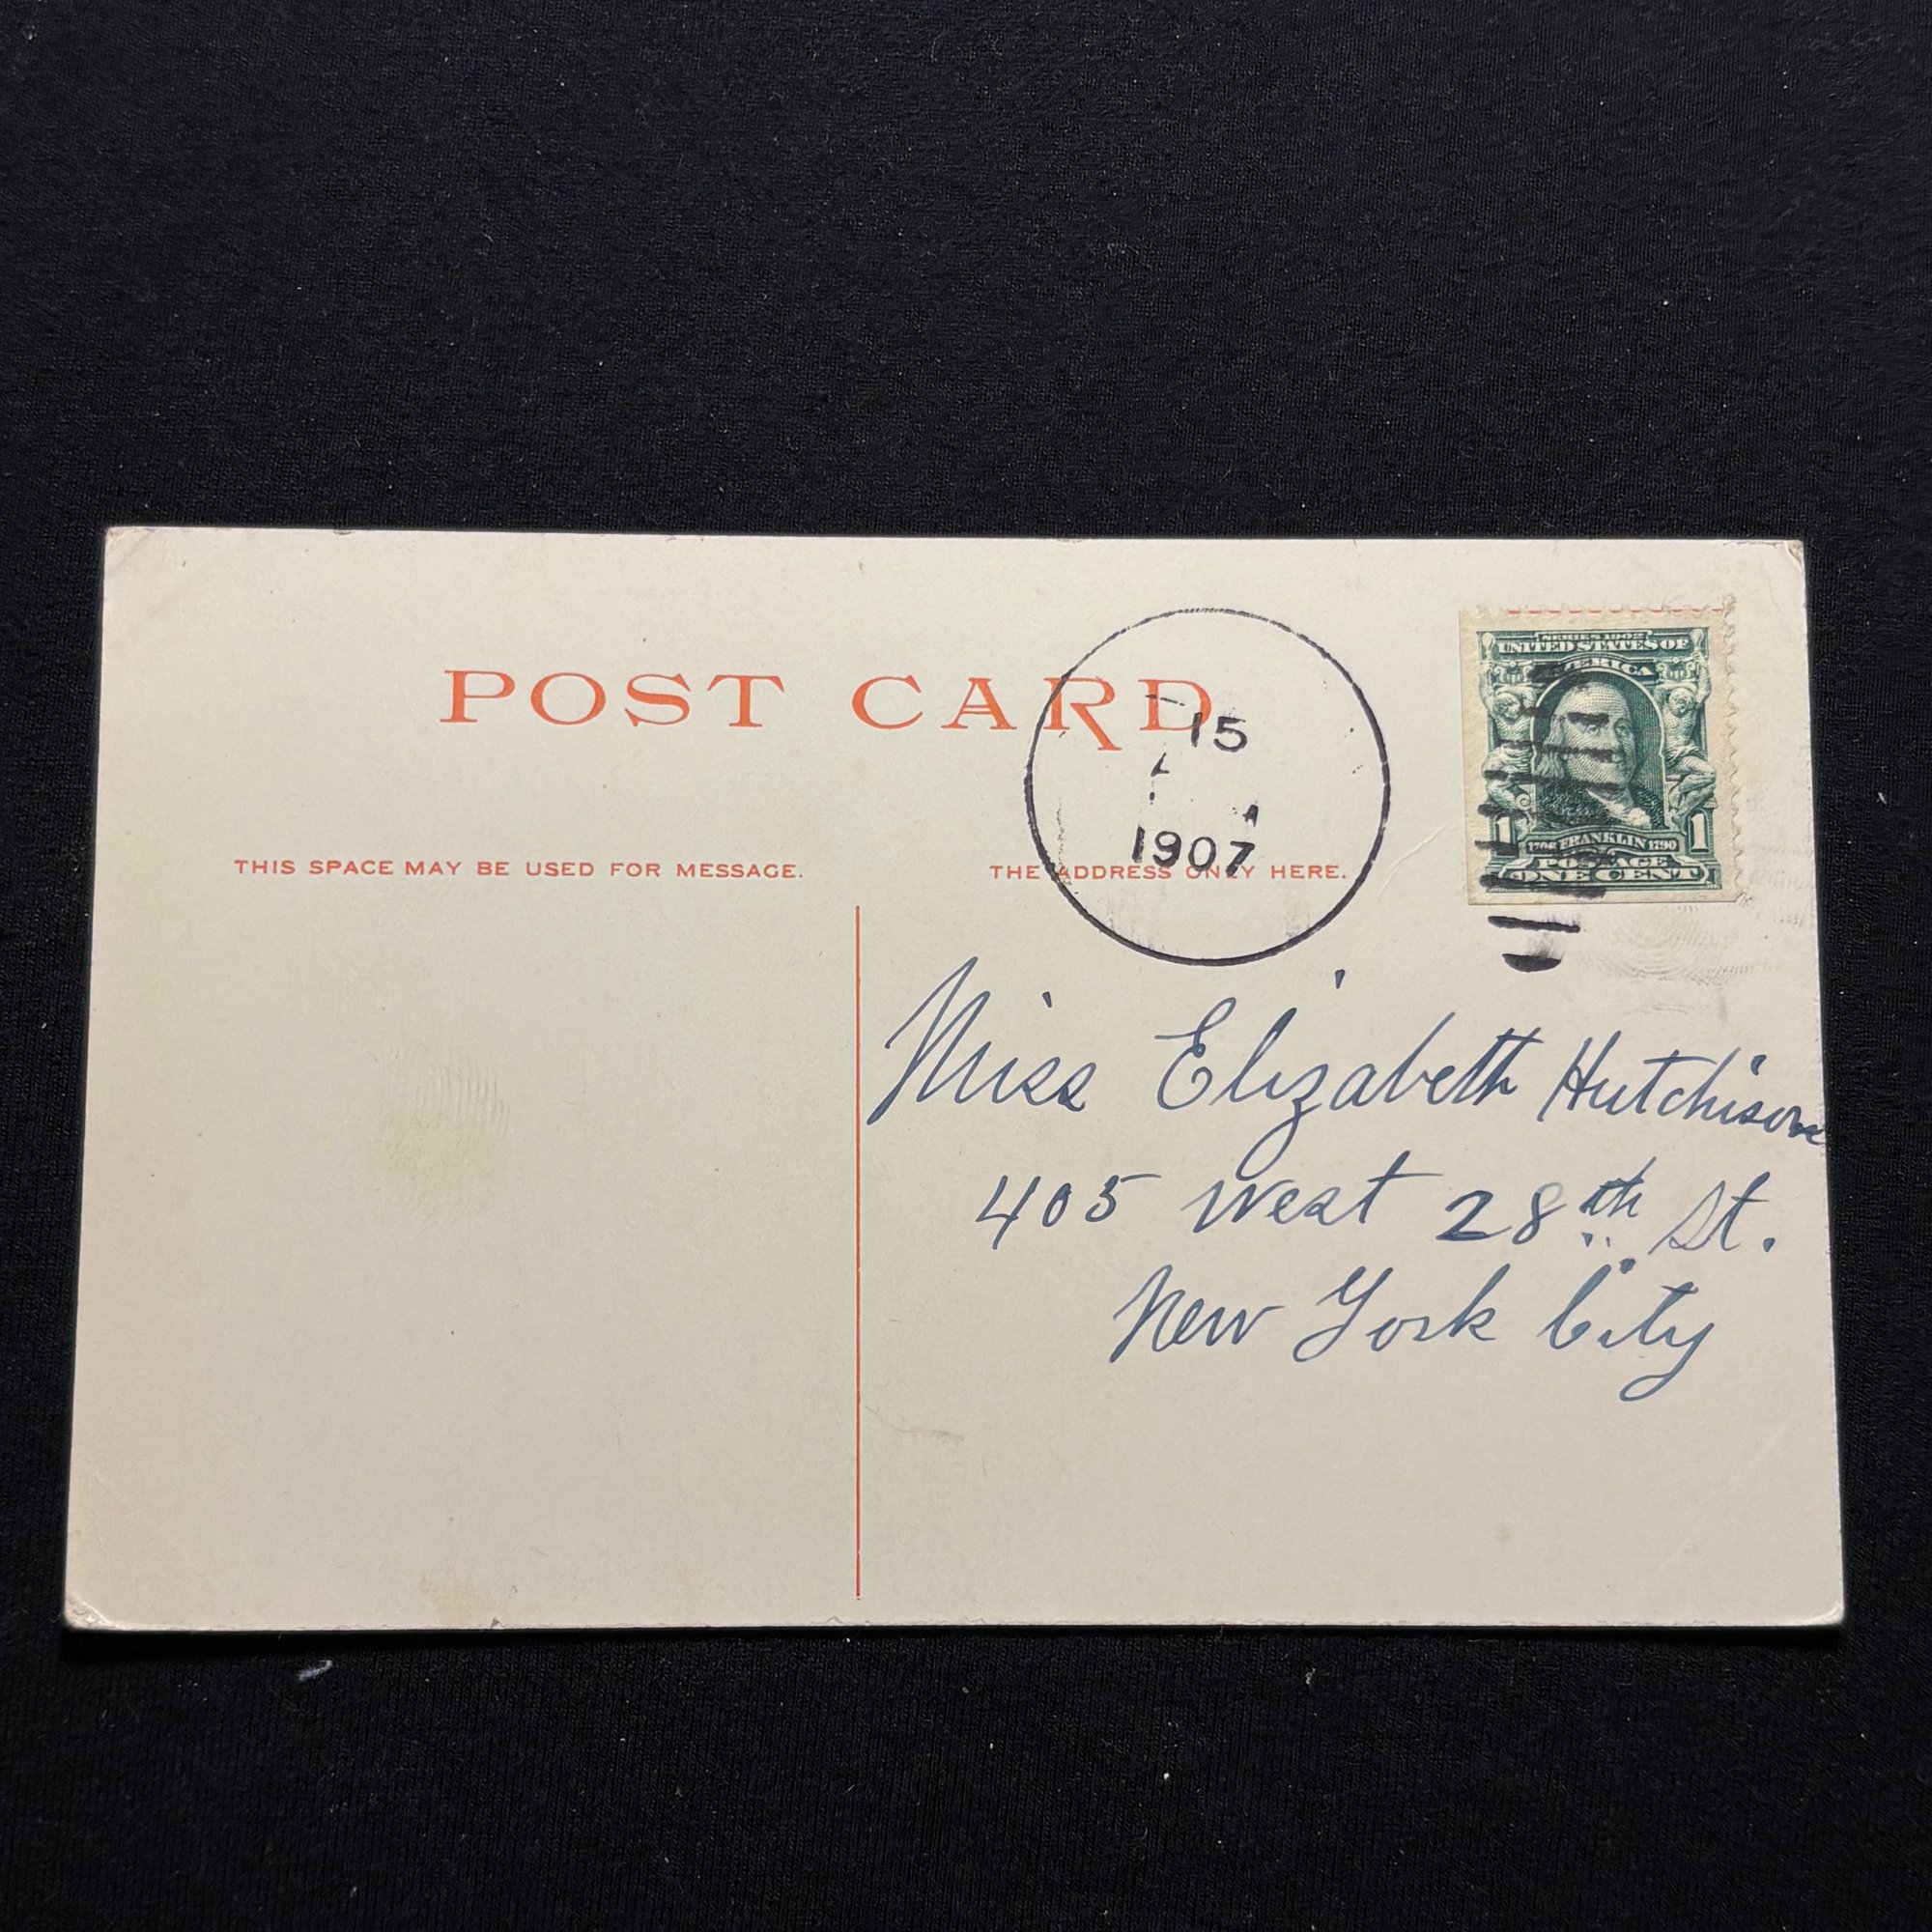 POST CARD
THIS SPACE MAY BE USED FOR MESSAGE.
THE ADDRESS ONLY HERE.
15
A
1907
SERIES 1902
UNITED STATES OF
AMERICA
1 1706 FRANKLIN 1790 1
POSTAGE
ONE CENT
Miss Elizabeth Hutchison
405 West 28th St.
New York City